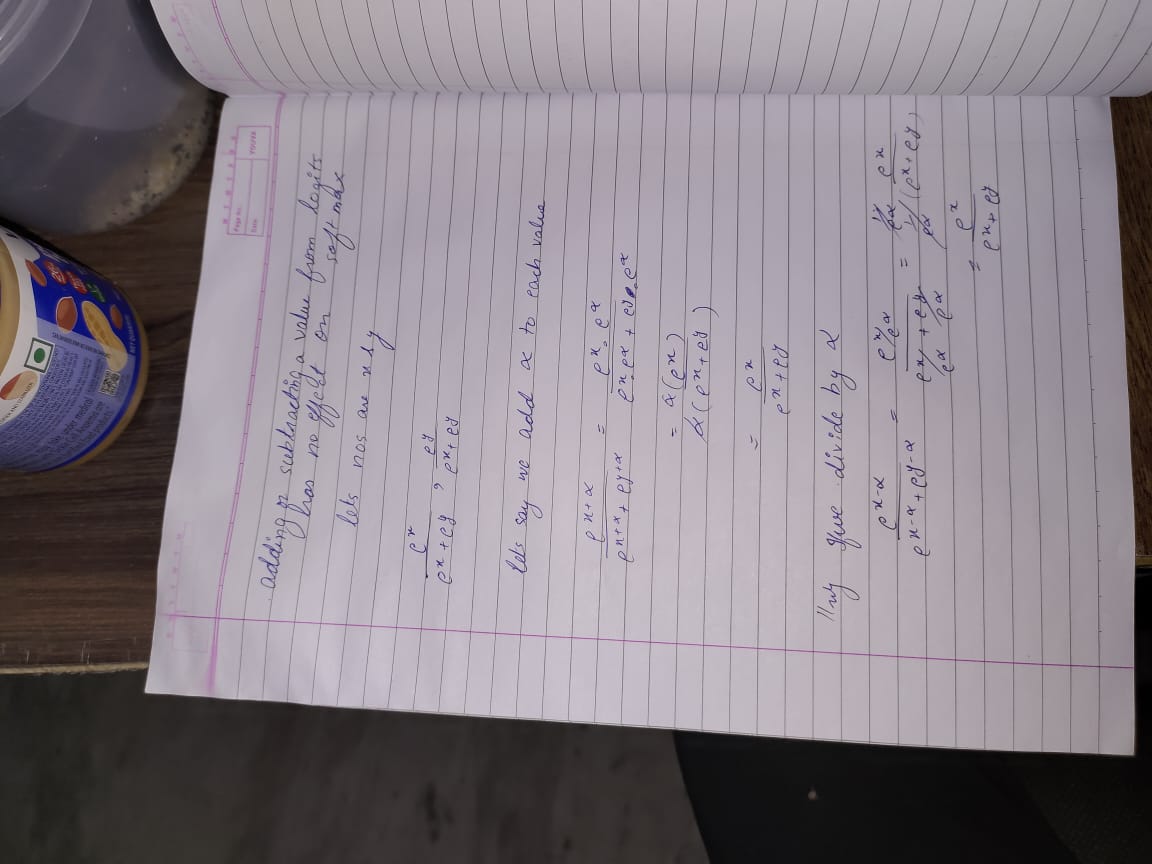 adding or subtracting a value from logits
has no effect on softmax
lets nos are x & y
e^x / (e^x + e^y) , e^y / (e^x + e^y)
lets say we add α to each value
e^(x+α) / (e^(x+α) + e^(y+α)) = e^x . e^α / (e^x . e^α + e^y . e^α)
= α(e^x) / α(e^x + e^y)
= e^x / (e^x + e^y)
lly divide by α
e^(x-α) / (e^(x-α) + e^(y-α)) = (e^x/e^α) / (e^x/e^α + e^y/e^α) = (1/e^α) e^x / ((1/e^α)(e^x + e^y))
= e^x / (e^x + e^y)